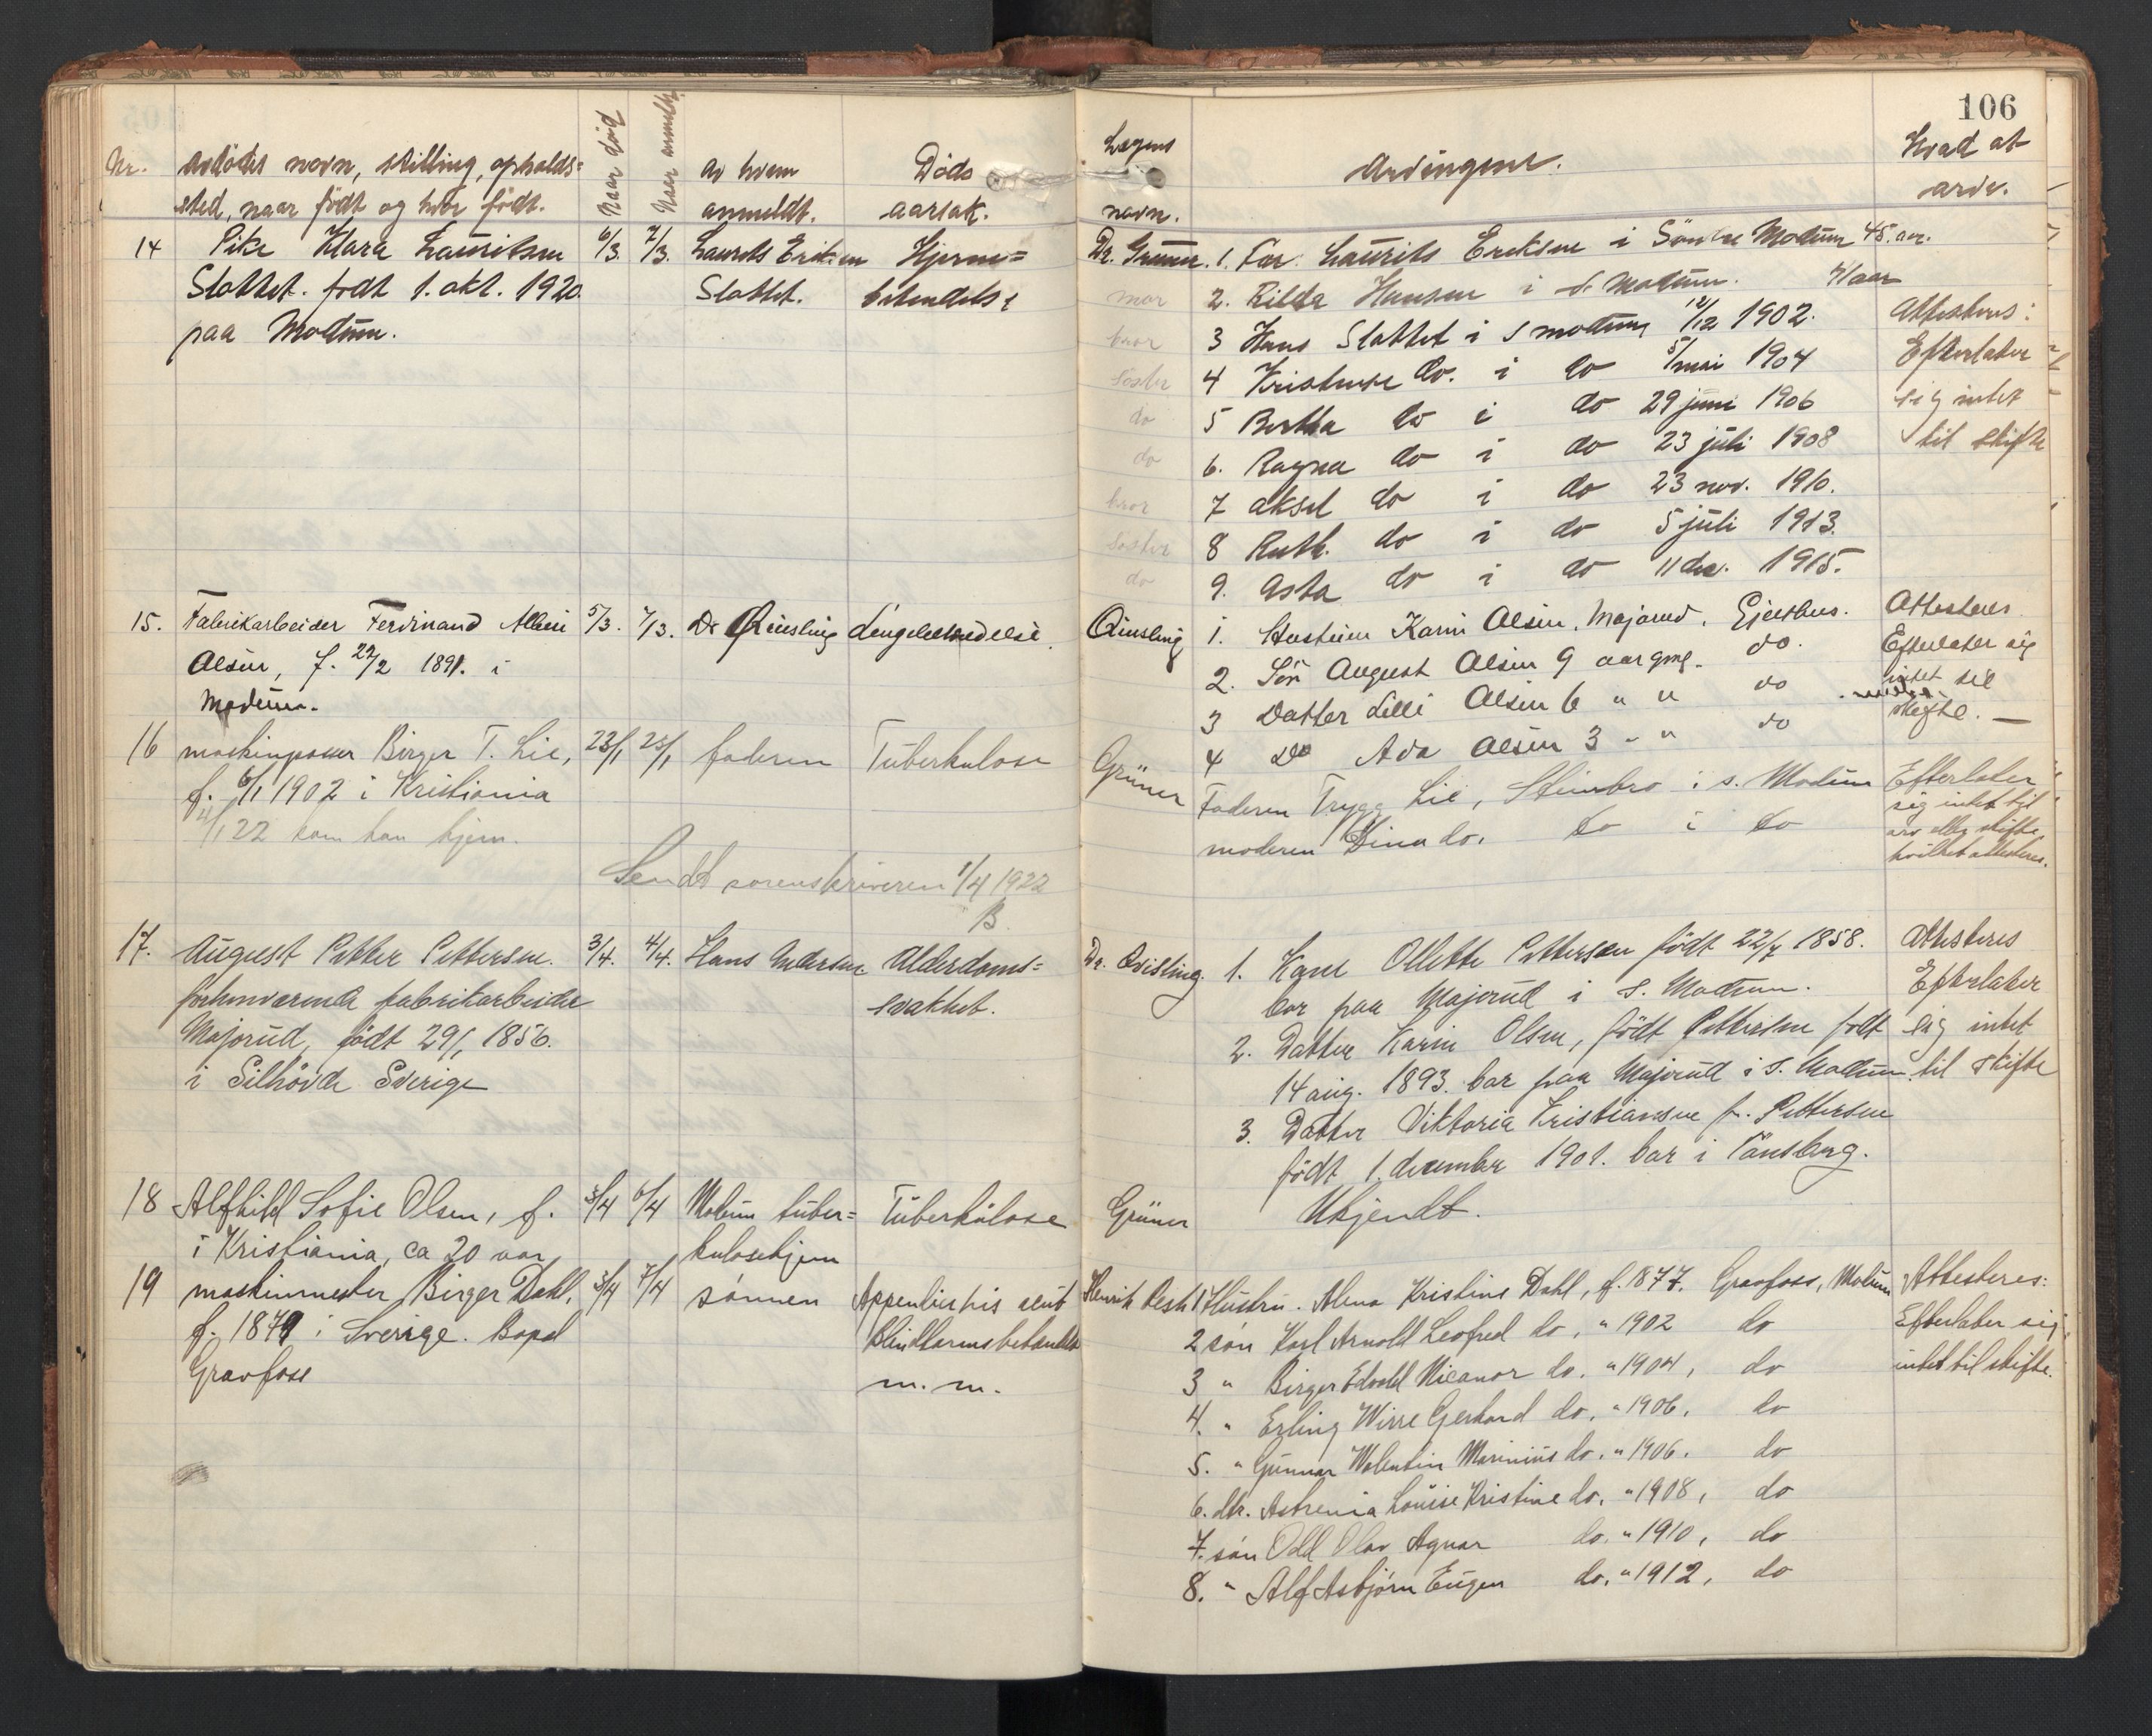 106
Nr.
avdødes navn, stilling, opholds=
sted, naar født og hvor født.
Naar død
Naar anmeldt
av hvem
anmeldt.
Døds
aarsak.
Lægens
navn.
Arvingene.
Hvad at
arve.
14
Pike Klara Lauritsen
Slattet. født 1. okt. 1920.
paa Modum.
6/3. 7/3.
Laurits Eriksen
Slattet.
Hjerne=
betendelse
Dr. Grüner.
1. Far. Laurits Eriksen i Søndre Modum 45. aar.
mor 2. Hilda Hansen i s. Modum. 41 aar
bror 3 Hans Slattet i s modum 12/12 1902.
søster 4 Kristense do. i do 5/mai 1904
do 5 Bertha do i do 29 juni 1906
do 6. Ragna do i do 23 juli 1908
bror 7 Aksel do i do 23 nov. 1910.
søster 8 Ruth. do i do 5 juli 1913.
do 9. Asta do i do 11 des. 1915.
Attesteres:
Efterlater
sig intet
til skifte
15.
Fabrikarbeider Ferdinand Albin
Olsen, f. 22/2 1891. i
Modum.
5/3. 7/3.
Dr Qvisling
Lungebetændelse.
Qvisling
1. Hustruen Karin Olsen, Majorud, Gjeithus.
2. Søn August Olsen 9 aar gml. do.
3 Datter Lilli Olsen 6 " " do
4 Do Ada Olsen 3 " " do
Attesteres
Efterlater sig
intet til
skifte. —
16
maskinpasser Birger T. Lie,
f. 6/1 1902 i Kristiania
4/1 22 kom han hjem.
23/1 25/1
faderen
Tuberkulose
Grüner
Faderen Trygg Lie, Stenbro i s. Modum
moderen Dina do. do i do
Efterlater
sig intet til
arv eller skifte,
hvilket attesteres.
Sendt sorenskriveren 1/4 1922
B.
17.
August Petter Pettersen.
forhenværende fabrikarbeider
Majorud, født 29/1 1856.
i Silhövde Sverige
3/4. 4/4.
Hans Andersen
Alderdoms=
svakhet.
Dr. Qvisling.
1. Kone Ollette Pettersen født 22/7 1858.
bor paa Majorud i S. Modum.
2. Datter Karin Olsen, født Pettersen født
14 aug. 1893. bor paa Majorud i S. Modum.
3. Datter Viktoria Kristiansen f. Pettersen
født 1. december 1901. bor i Tønsberg.
Attesteres
Efterlater
sig intet
til skifte
18
Alfhild Sofie Olsen, f.
i Kristiania, ca 20 aar
5/4 6/4
Modum tuber=
kulosehjem
Tuberkulose
Grüner
Ukjendt.
19
maskinmester Birger Dahl,
f. 1879 i Sverige. Bopæl
Gravfoss
5/4 7/4
sønnen
Appendicitis acut
Blindtarmsbetændelse
m. m.
Henrik
1 Hustru. Alma Kristine Dahl, f. 1877. Gravfoss, Modum
2 søn Karl Arnold Leofred do, " 1902 do
3 " Birger Edvald Nicanor do. " 1904, do
4. " Erling Wirre Gerhard do. " 1906, do
5. " Gunnar Walentin Marinius do. " 1906. do
6. dtr. Astrenia Louise Kristine do. " 1908, do
7. søn Odd Olav Agnar do. " 1910, do
8. " Alf Asbjørn Eugen do. " 1912, do
Attesteres:
Efterlater sig
intet til skifte.